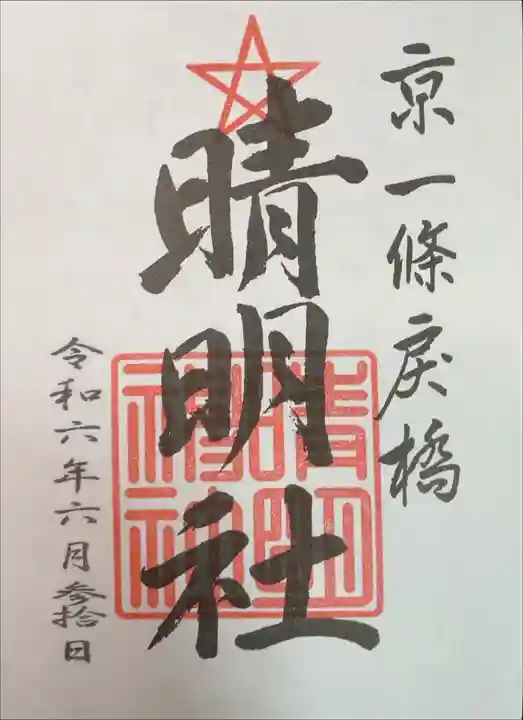 京一條戻橋
晴明社
晴明
神社
令和六年六月参拾日